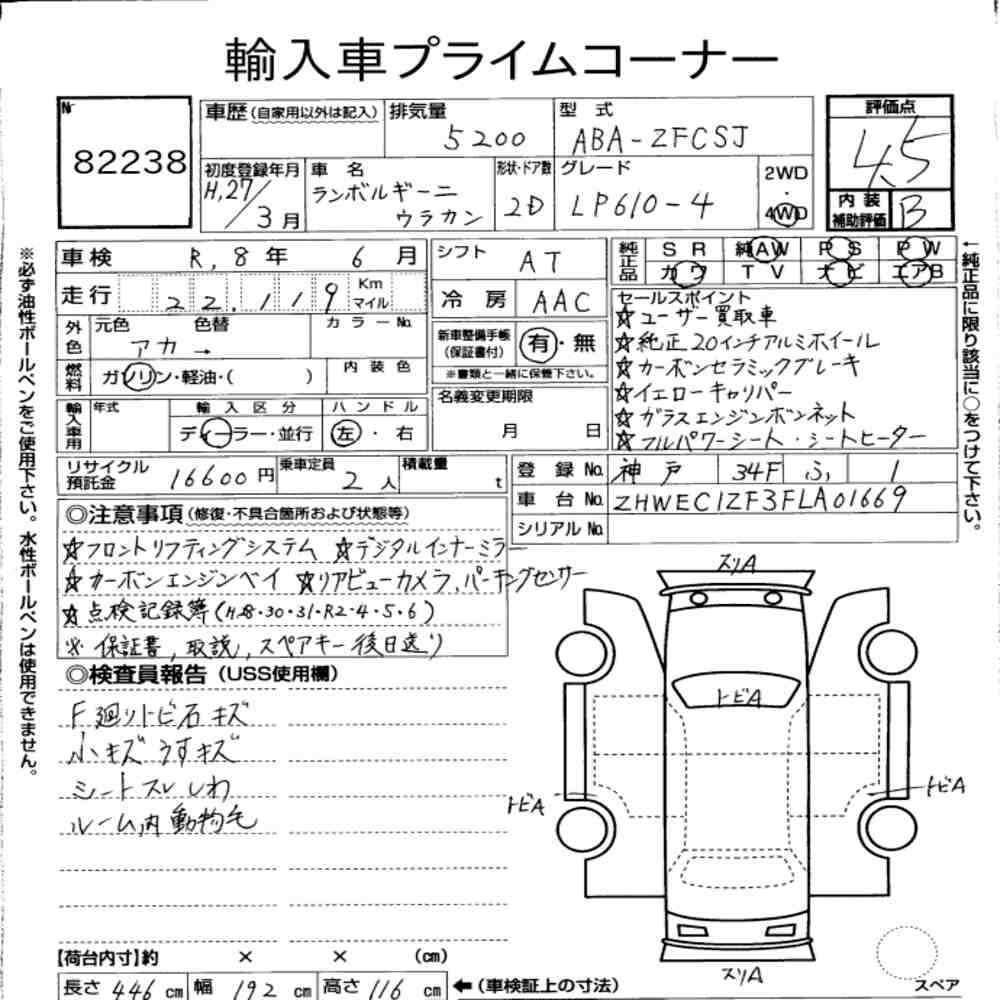 輸入車プライムコーナー
№ 82238
車歴(自家用以外は記入) 排気量 5200 型式 ABA-ZFCSJ
初度登録年月 H,27/3月 車名 ランボルギーニ ウラカン 形状・ドア数 2D グレード LP610-4 2WD・4WD
評価点 4.5
内装補助評価 B
車検 R, 8年 6月
走行 22.119 Km マイル
外色 元色 色替 カラーNo.
アカ →
燃料 ガソリン・軽油・( ) 内装色
輸入車用 年式 輸入区分 ハンドル
ディーラー・並行 左・右
シフト AT
冷房 AAC
新車整備手帳(保証書付) 有・無
※書類と一緒に保管下さい。
名義変更期限
月 日
純正品 SR 純AW PS PW
カワ TV ナビ エアB
セールスポイント
☆ユーザー買取車
☆純正20インチアルミホイール
☆カーボンセラミックブレーキ
☆イエローキャリパー
☆ガラスエンジンボンネット
☆フルパワーシート・シートヒーター
リサイクル預託金 16600円 乗車定員 2人 積載量 t
登録No. 神戸 34F ふ 1
車台No. ZHWEC1ZF3FLA01669
シリアルNo.
◎注意事項(修復・不具合箇所および状態等)
☆フロントリフティングシステム ☆デジタルインナーミラー
☆カーボンエンジンベイ ☆リアビューカメラ、パーキングセンサー
☆点検記録簿(H.28・30・31・R2・4・5・6)
※保証書, 取説, スペアキー後日送り
◎検査員報告(USS使用欄)
F廻りトビ石キズ
小キズ うすキズ
シートスレしわ
ルーム内動物毛
スリA
トビA
トビA
トビA
スリA
スペア
【荷台内寸】約 × × (cm)
長さ 446cm 幅 192cm 高さ 116cm ←(車検証上の寸法)
※必ず油性ボールペンをご使用下さい。水性ボールペンは使用できません。
←純正品に限り該当に○をつけて下さい。